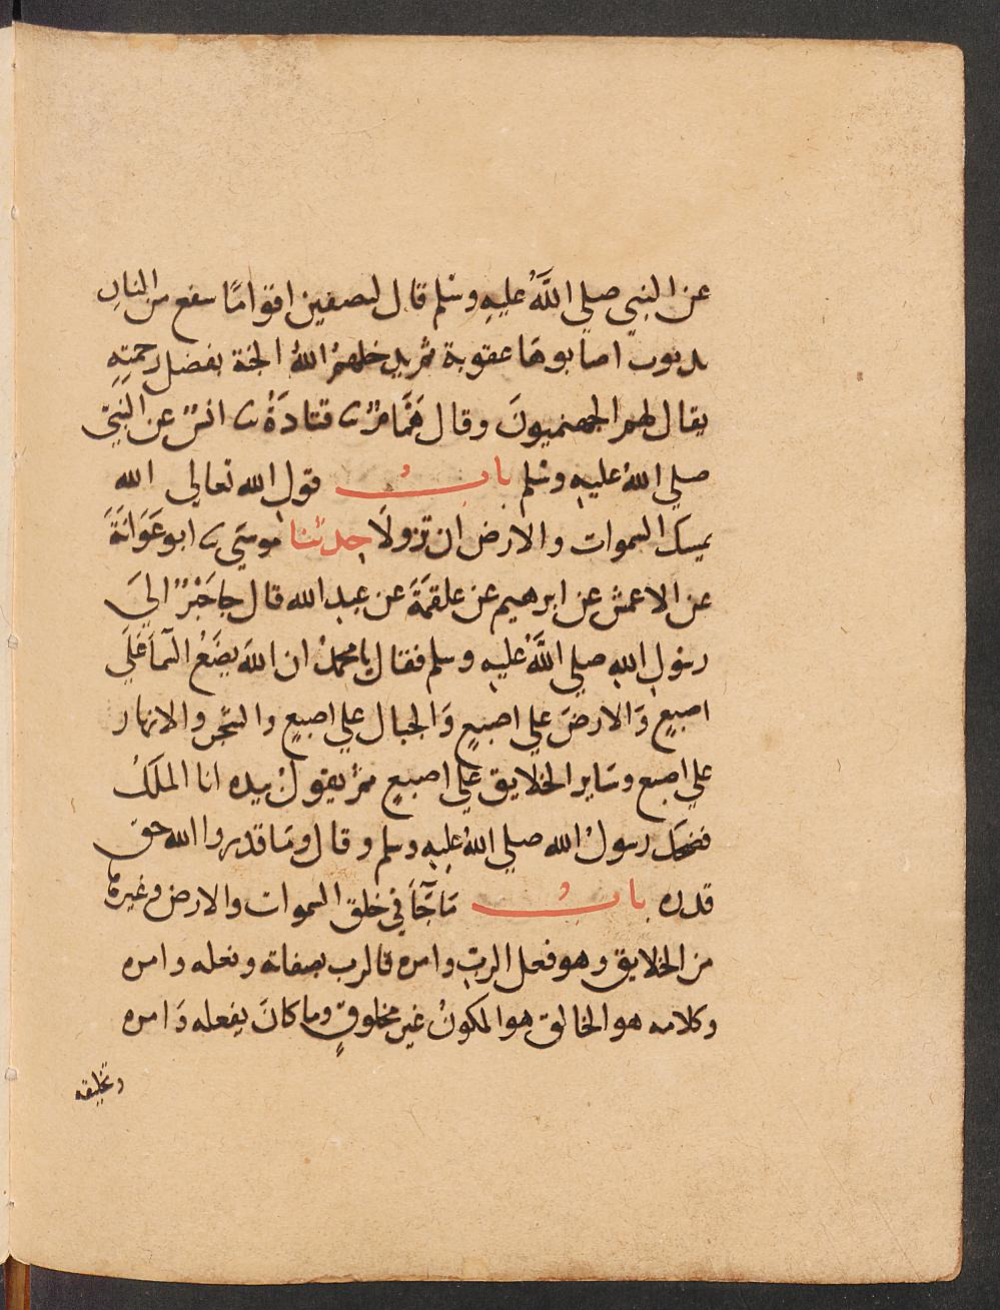 عن النبي صلي اللَّهُ عليهِ وسلم قال ليصيبن اقوامًا سفع من النارِ
بدنوب اصابوهَا عقوبة ثم يدخلهمُ اللهُ الجنة بفضل رحمتِهِ
يقال لهم الجهنميونَ وقال هَمَّامٌ ثنا قتادَةُ ثنا انسٌ عن النبيِّ
صلي اللهُ عليهِ وسلم بابُ قول الله تعالي الله
يمسك السموات والارض ان تزولَا حدثنا موسَي ثنا ابو عَوَانَةَ
عن الاعمش عن ابرهيم عن علقمَةَ عن عبد الله قال جا حَبْرٌ اليَ
رسُولِ اللهِ صلي اللَّهُ عليهِ وسلم فقال يا محمدُ ان اللهَ يضَعُ السمآ عَلَي
اصبعٍ وَالارضَ علي اصبعٍ وَالجبال علي اصبعٍ والشجر والانهار
علي اصبع وسَاير الخلايق علي اصبعٍ ثمَّ يقولُ بيده انا الملكُ
فضحكَ رسولُ الله صلي اللهُ عليه وسلم وقال ومَا قدروا الله حق
قدره بابُ مَا جَآءَ في خلق السموات والارض وغيرهَا
من الخلايق وهو فعل الربِ وامره فالرب بصفاته وفعله وامره
وكلامه هو الخالق هو المكونُ غير مخلوقٍ وما كانَ بفعله وَامره
وتخليقه